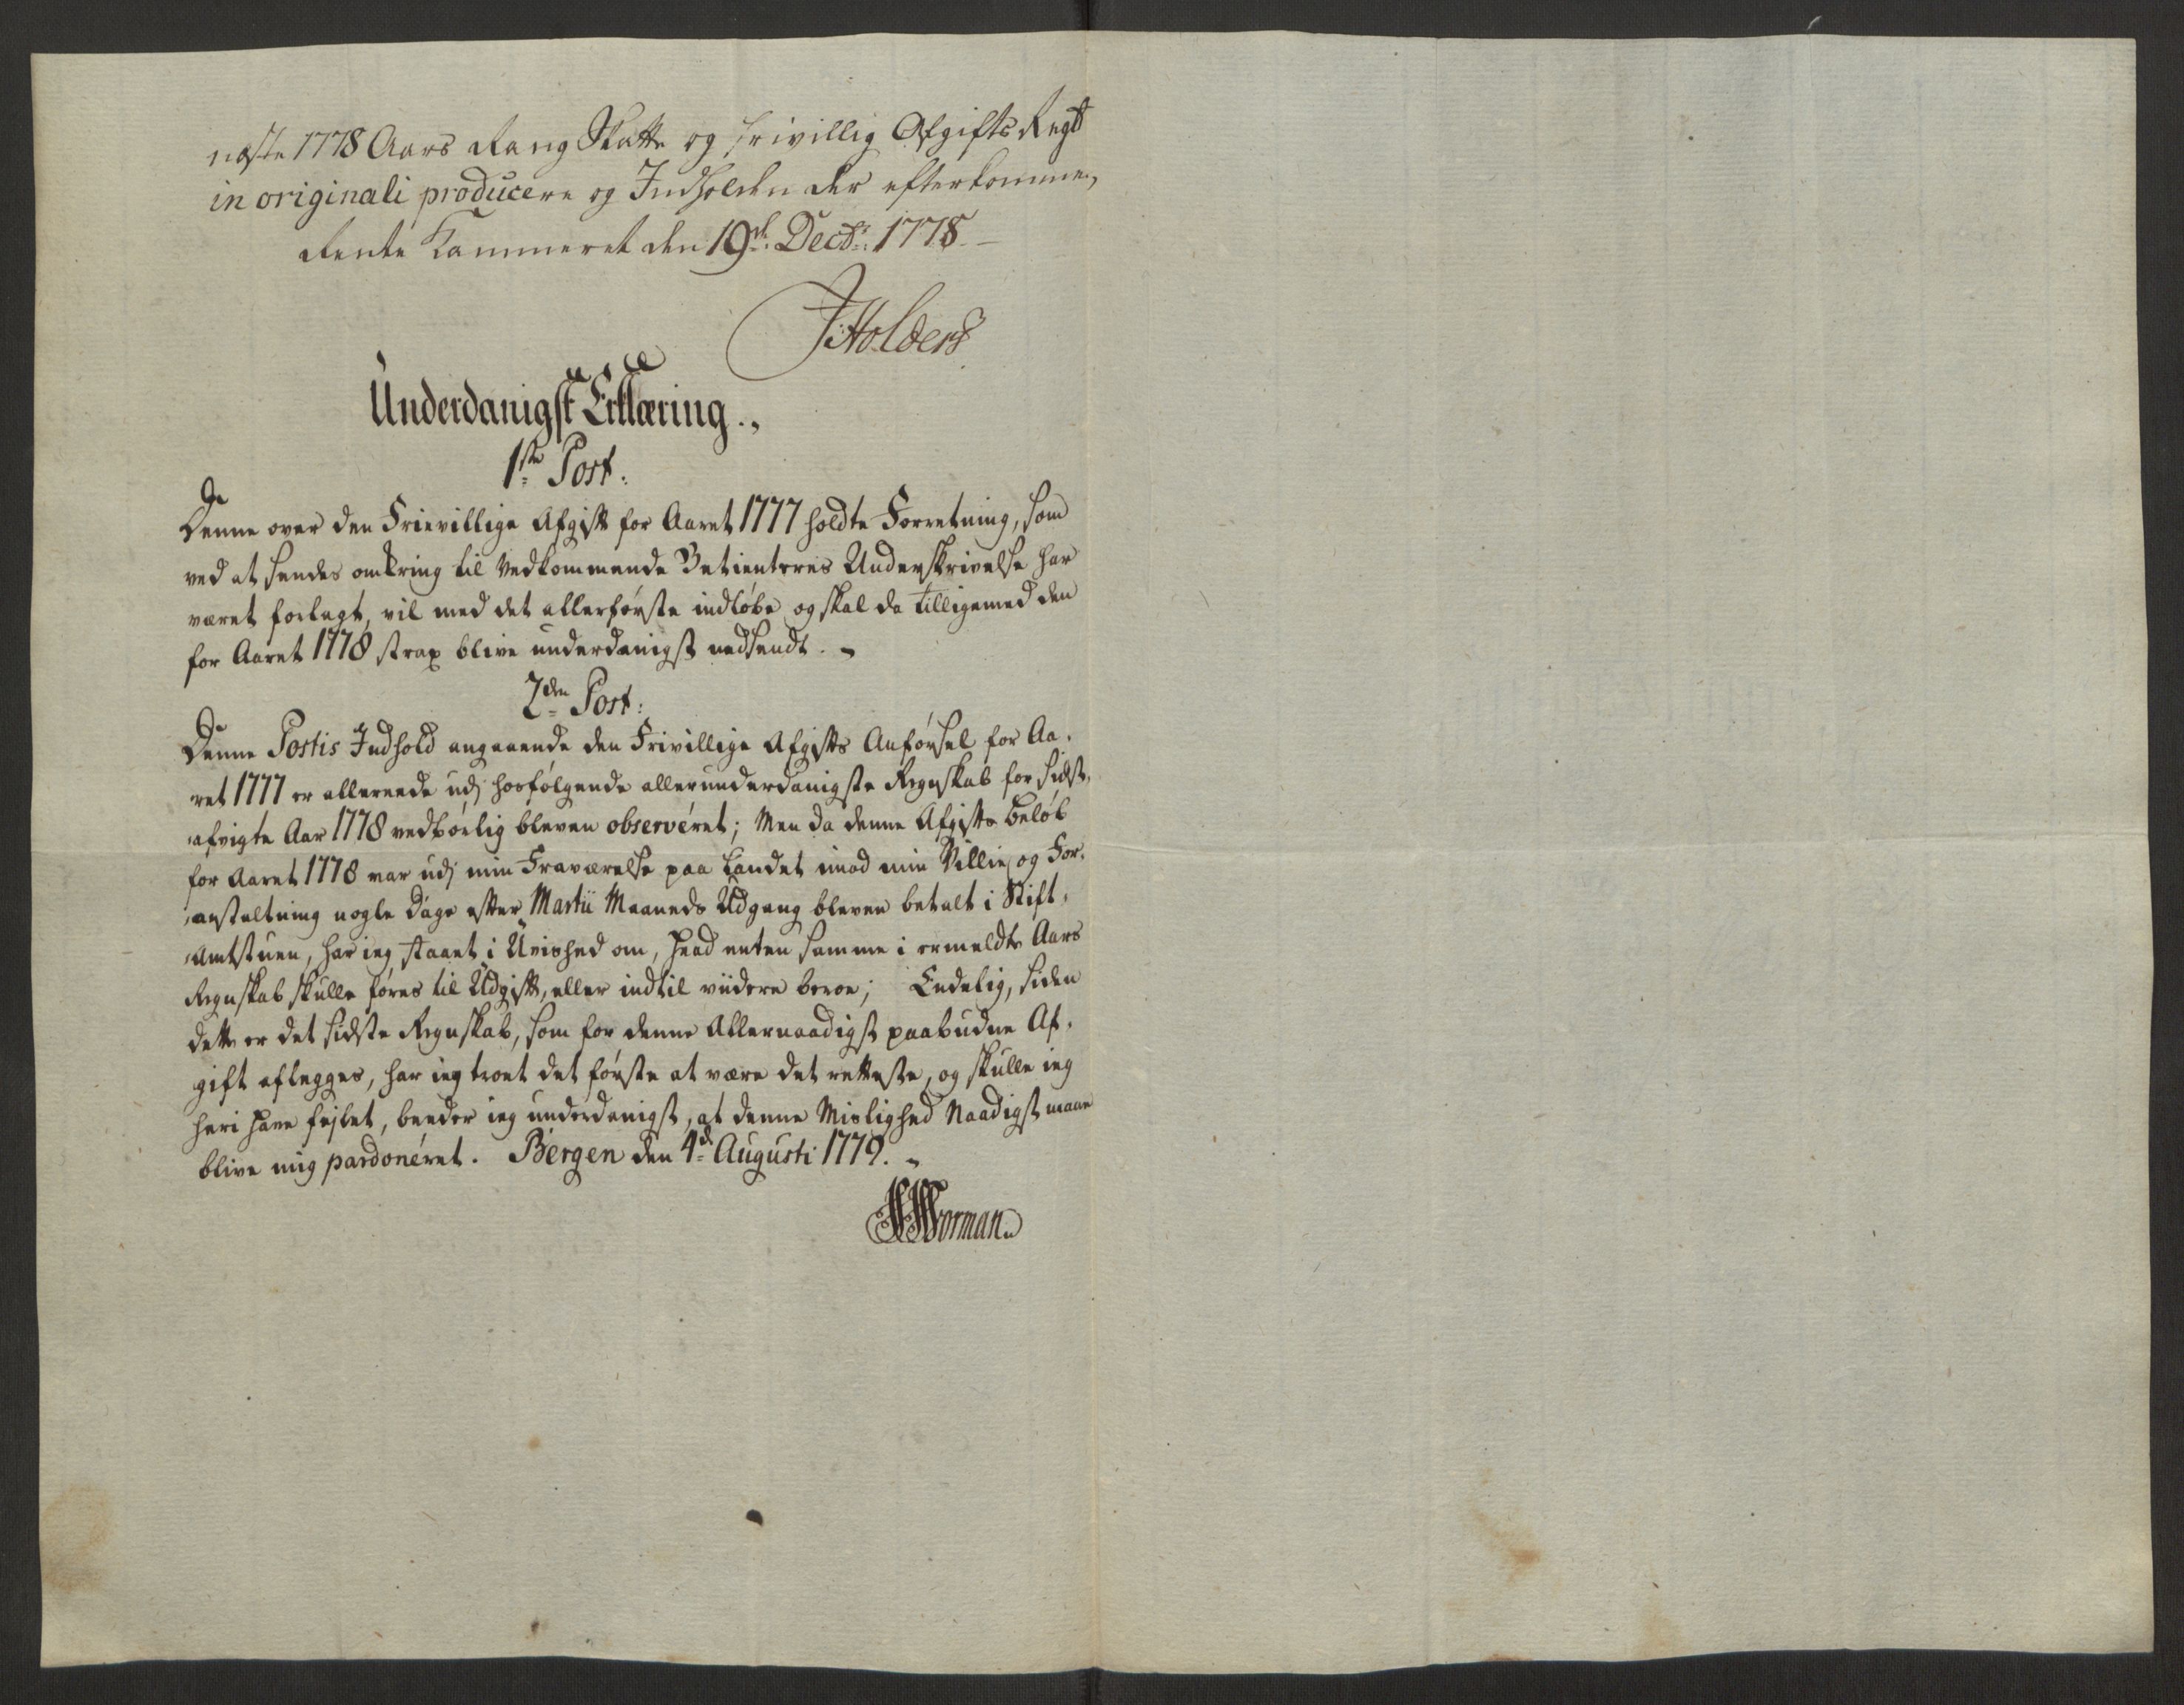 næste 1778 Aars Rang Skatte og frivillig Afgifts Regsb
in originali producere og Indholden der efterkomme,
Rente Kammeret den 19de Decbr: 1778.
J Holders
Underdanigst Erklæring.,
1ste Post:
Denne over den Frievillige Afgift for Aaret 1777 holdte Forretning, som
ved at sendes omkring til Vedkommende Betienteres Underskrivelse har
været forlagt, vil med det allerførste indløbe og skal da tilligemed den
for Aaret 1778 strax blive underdanigst nedsendt.
2den Post:
Denne Postis Indhold angaaende den Frivillige Afgifts Anførsel for Aa-
ret 1777 er allereede udj hosfølgende allerunderdanigste Regnskab for sidst-
afvigte Aar 1778 vedbørlig bleven observéret; Men da denne Afgifts beløb
for Aaret 1778 var udj min Fraværelse paa Landet imod min Villie og For-
anstaltning nogle Dage efter Martii Maaneds Udgang bleven betalt i Stift-
Amtstuen, har ieg staaet i Uvished om, hvad enten samme i ermeldte Aars
Regnskab skulle føres til Udgift, eller indtil viidere beroe; Endelig, siden
dette er det sidste Regnskab, som for denne Allernaadigst paabudne Af-
gift aflegges, har ieg troet det første at være det retteste, og skulle ieg
heri have fejlet, beeder ieg underdanigst, at denne Mislighed Naadigst maae
blive mig pardonéret. Bergen den 4de Augusti 1779.
Worman